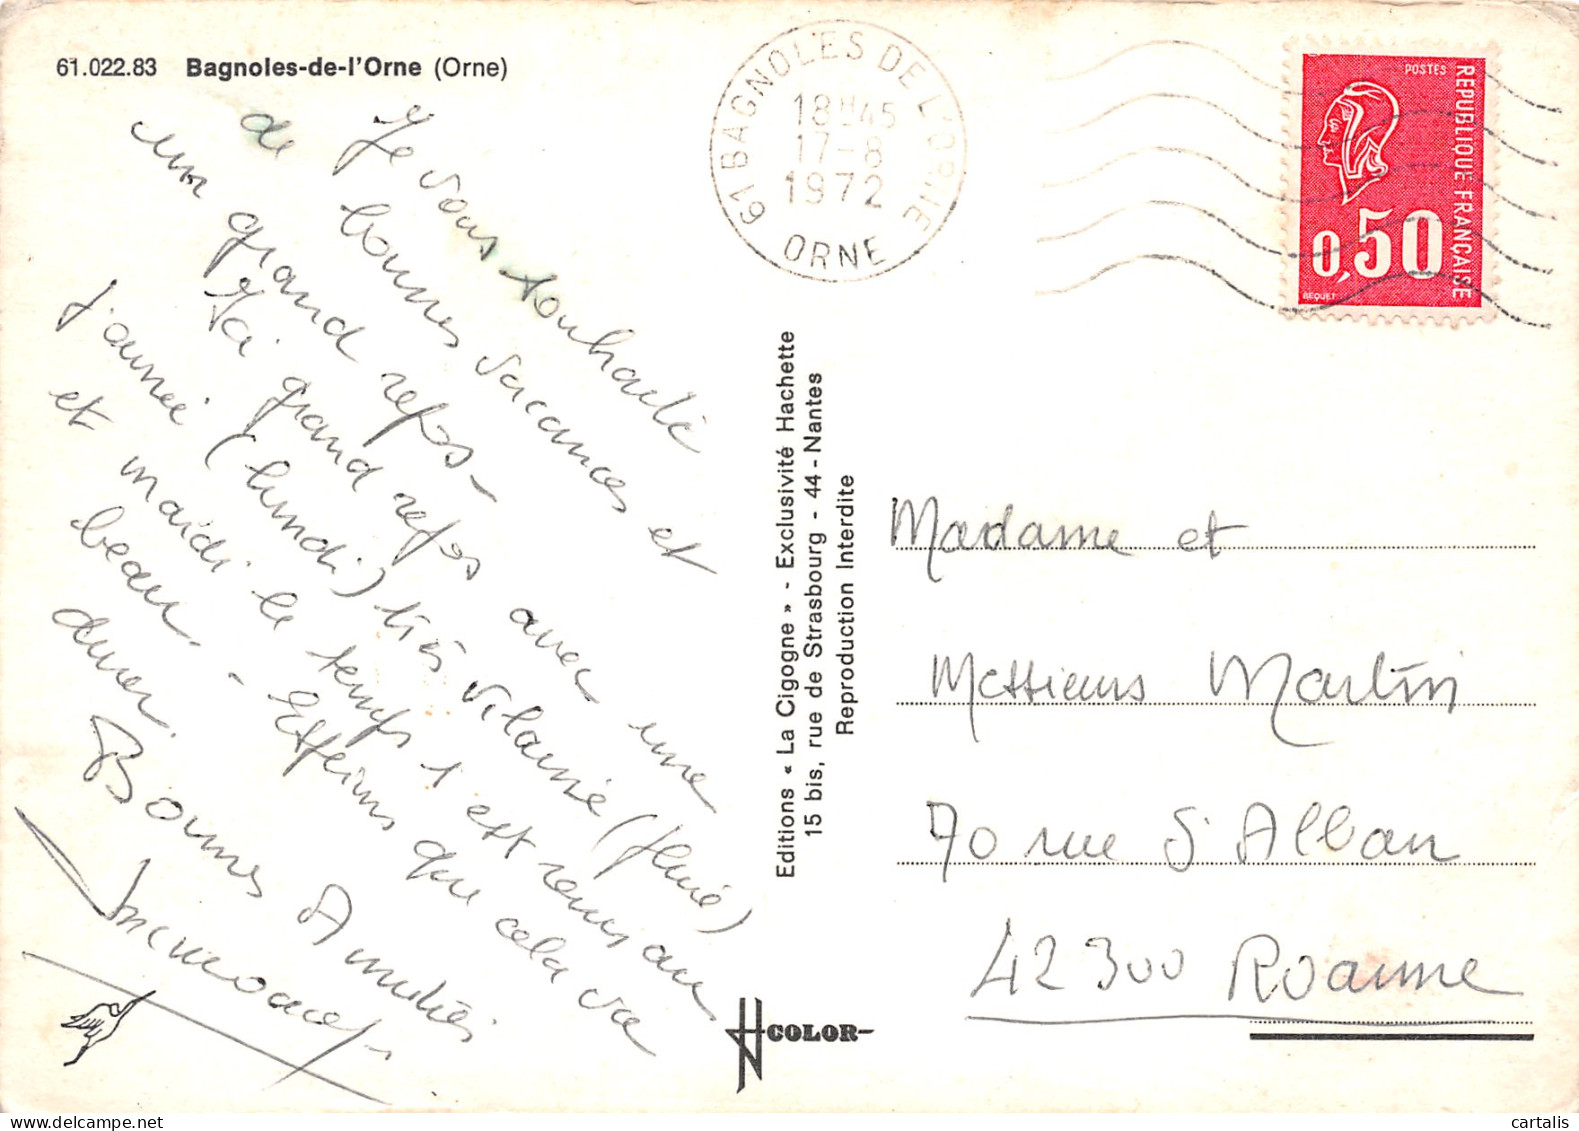 61.022.83 Bagnoles-de-l'Orne (Orne)
Je vous souhaite
de bonnes vacances et
un grand repos -
Ici grand repos avec une
journée (lundi) très vilaine (pluie)
et mardi le temps s'est remis au
beau. - Espérons que cela va
durer.
Bonnes Amitiés
61 BAGNOLES DE L'ORNE
18H45
17-8
1972
ORNE
POSTES
REPUBLIQUE FRANÇAISE
0,50
BEQUET
Editions « La Cigogne » - Exclusivité Hachette
15 bis, rue de Strasbourg - 44 - Nantes
Reproduction Interdite
Madame et
Messieurs Martin
70 rue St Alban
42300 Roanne
COLOR
cartalis